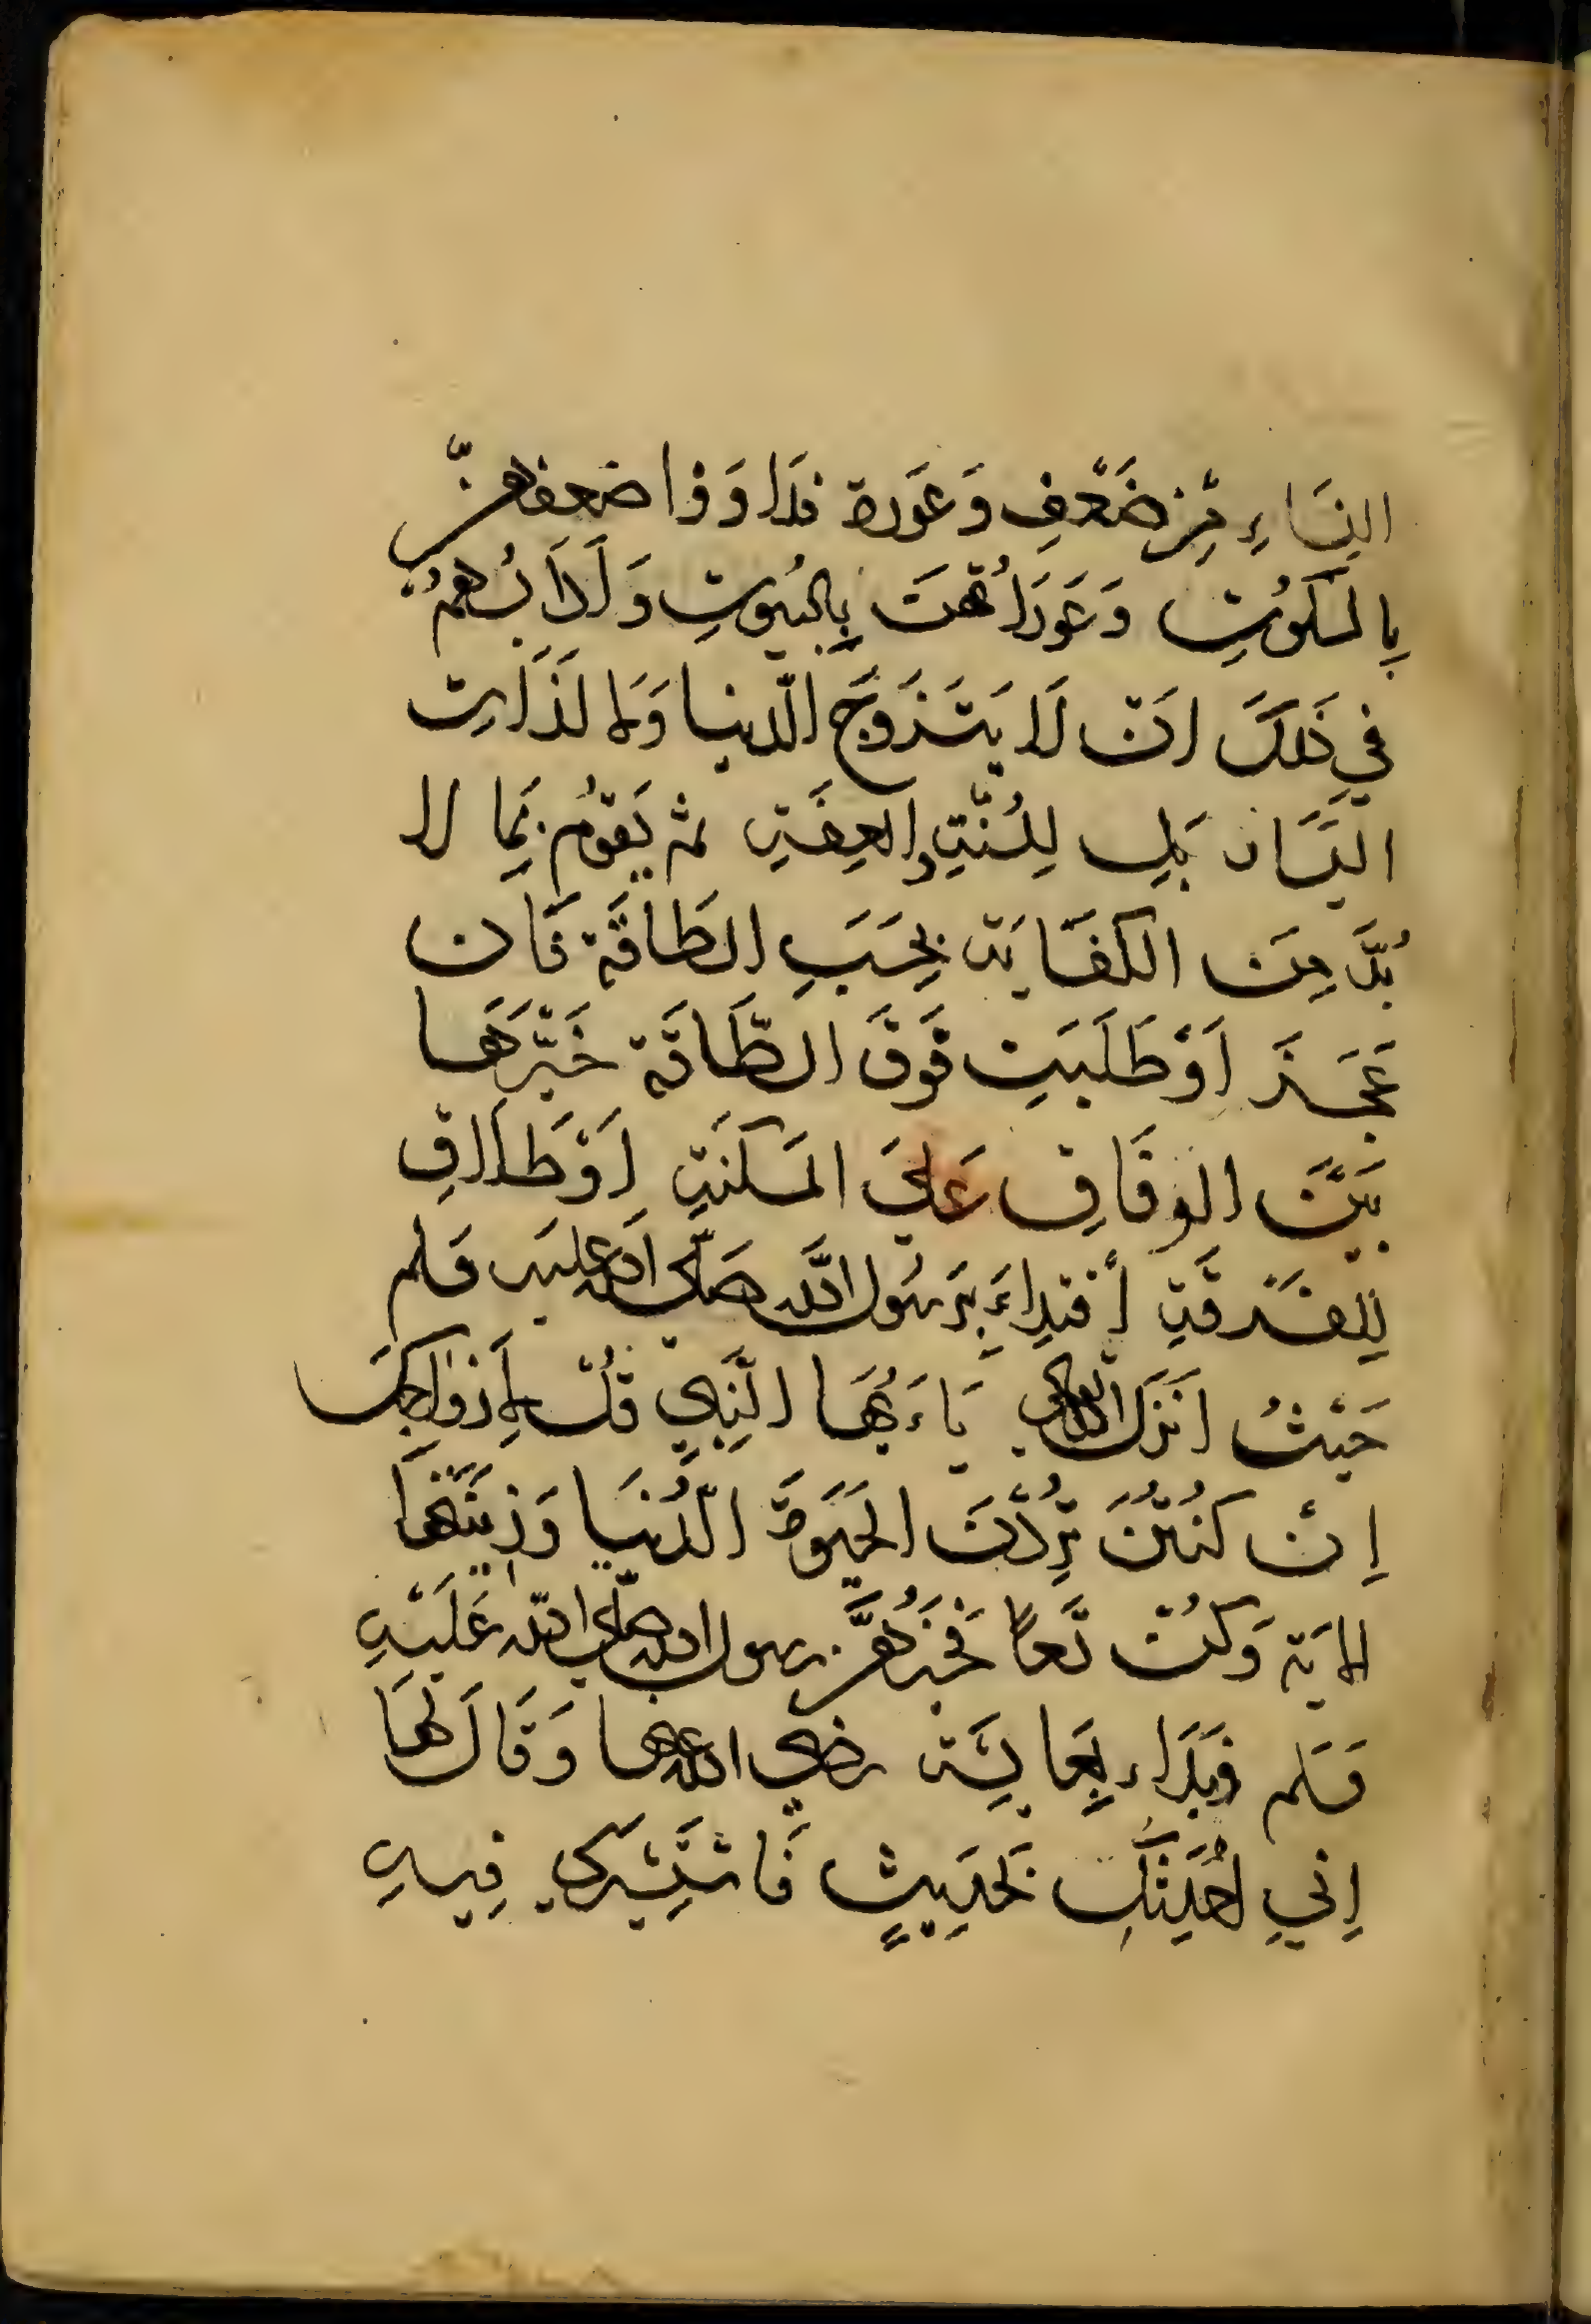 النِسَاءِ مِّنْ ضَعْفِ وَعَورة فدا وَوا ضعفهنّ
بِالسكوُتِ وَعَورَاتُهنَ بِالبُيوتِ وَلَادَابُهمُ
في ذَلكَ انْ لَا يَتَزَوَّجَ الدنيا وَلا لذَات
اليسَار بَلِ لِلسُنّةِ والعِفّةِ ثم يَقوُم بِمَا لا
بُدَّ مِنَ الكفَاية بِحَسَبِ الطَاقَة فَان
عَجَزَ اَوْ طَلَبَت فَوقَ الطَّاقَة خَيّرَهَا
بَيْنَ الوِفَاقِ عَليَ المَسكَنَةِ اَوْ طَلاقِ
لِلِفُرقَةِ اقتداءَ بِرَسُول الله صَلّى الله عليه وسلم
حَيْثُ انَزَلَ الله تعالى يَاءَيُّهَا النَّبِي قُلْ لِأَزواجِكَ
اِنْ كنُتُنَ تُرِدْنَ الحَيَوةَ الدُّنيَا وَزِينَتَهَا
الاية وَكُنّ تسعا فَخَيَرَهُنَّ رسول الله صلى الله عَلَيْهِ
وسَلم فَبَدَاء بِعَايِشَة رضي الله عنها وَقَالَ لهَا
اِنِي اُحَدِثكِ بَحدِيثٍ فَاستَشِيرِي فِيهِ